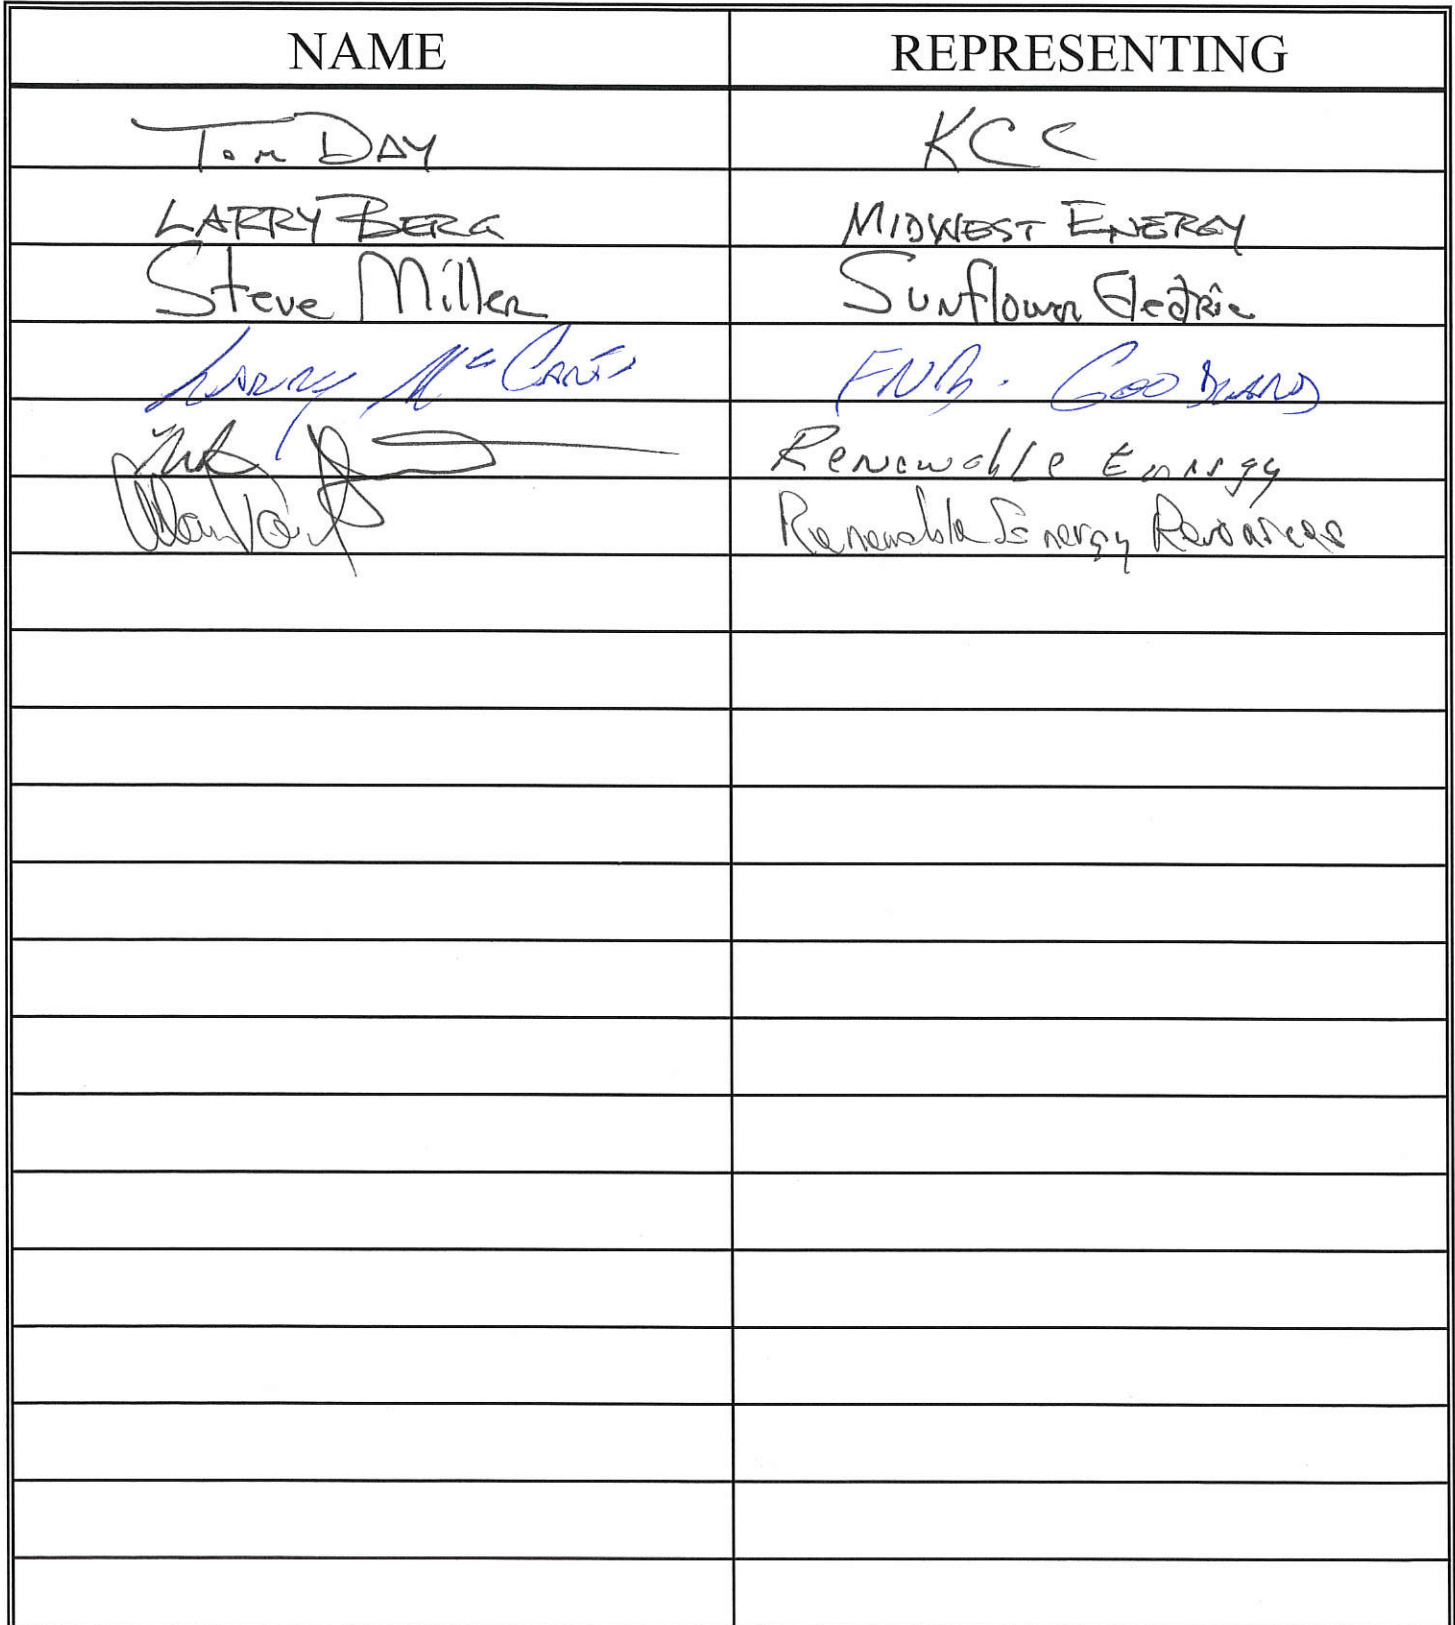 NAME REPRESENTING
Tom DAY KCC
LARRY BERG MIDWEST ENERGY
Steve Miller Sunflower Electric
LARRY FNB. GOODLAND
Renewable Energy
Renewable Energy Resources